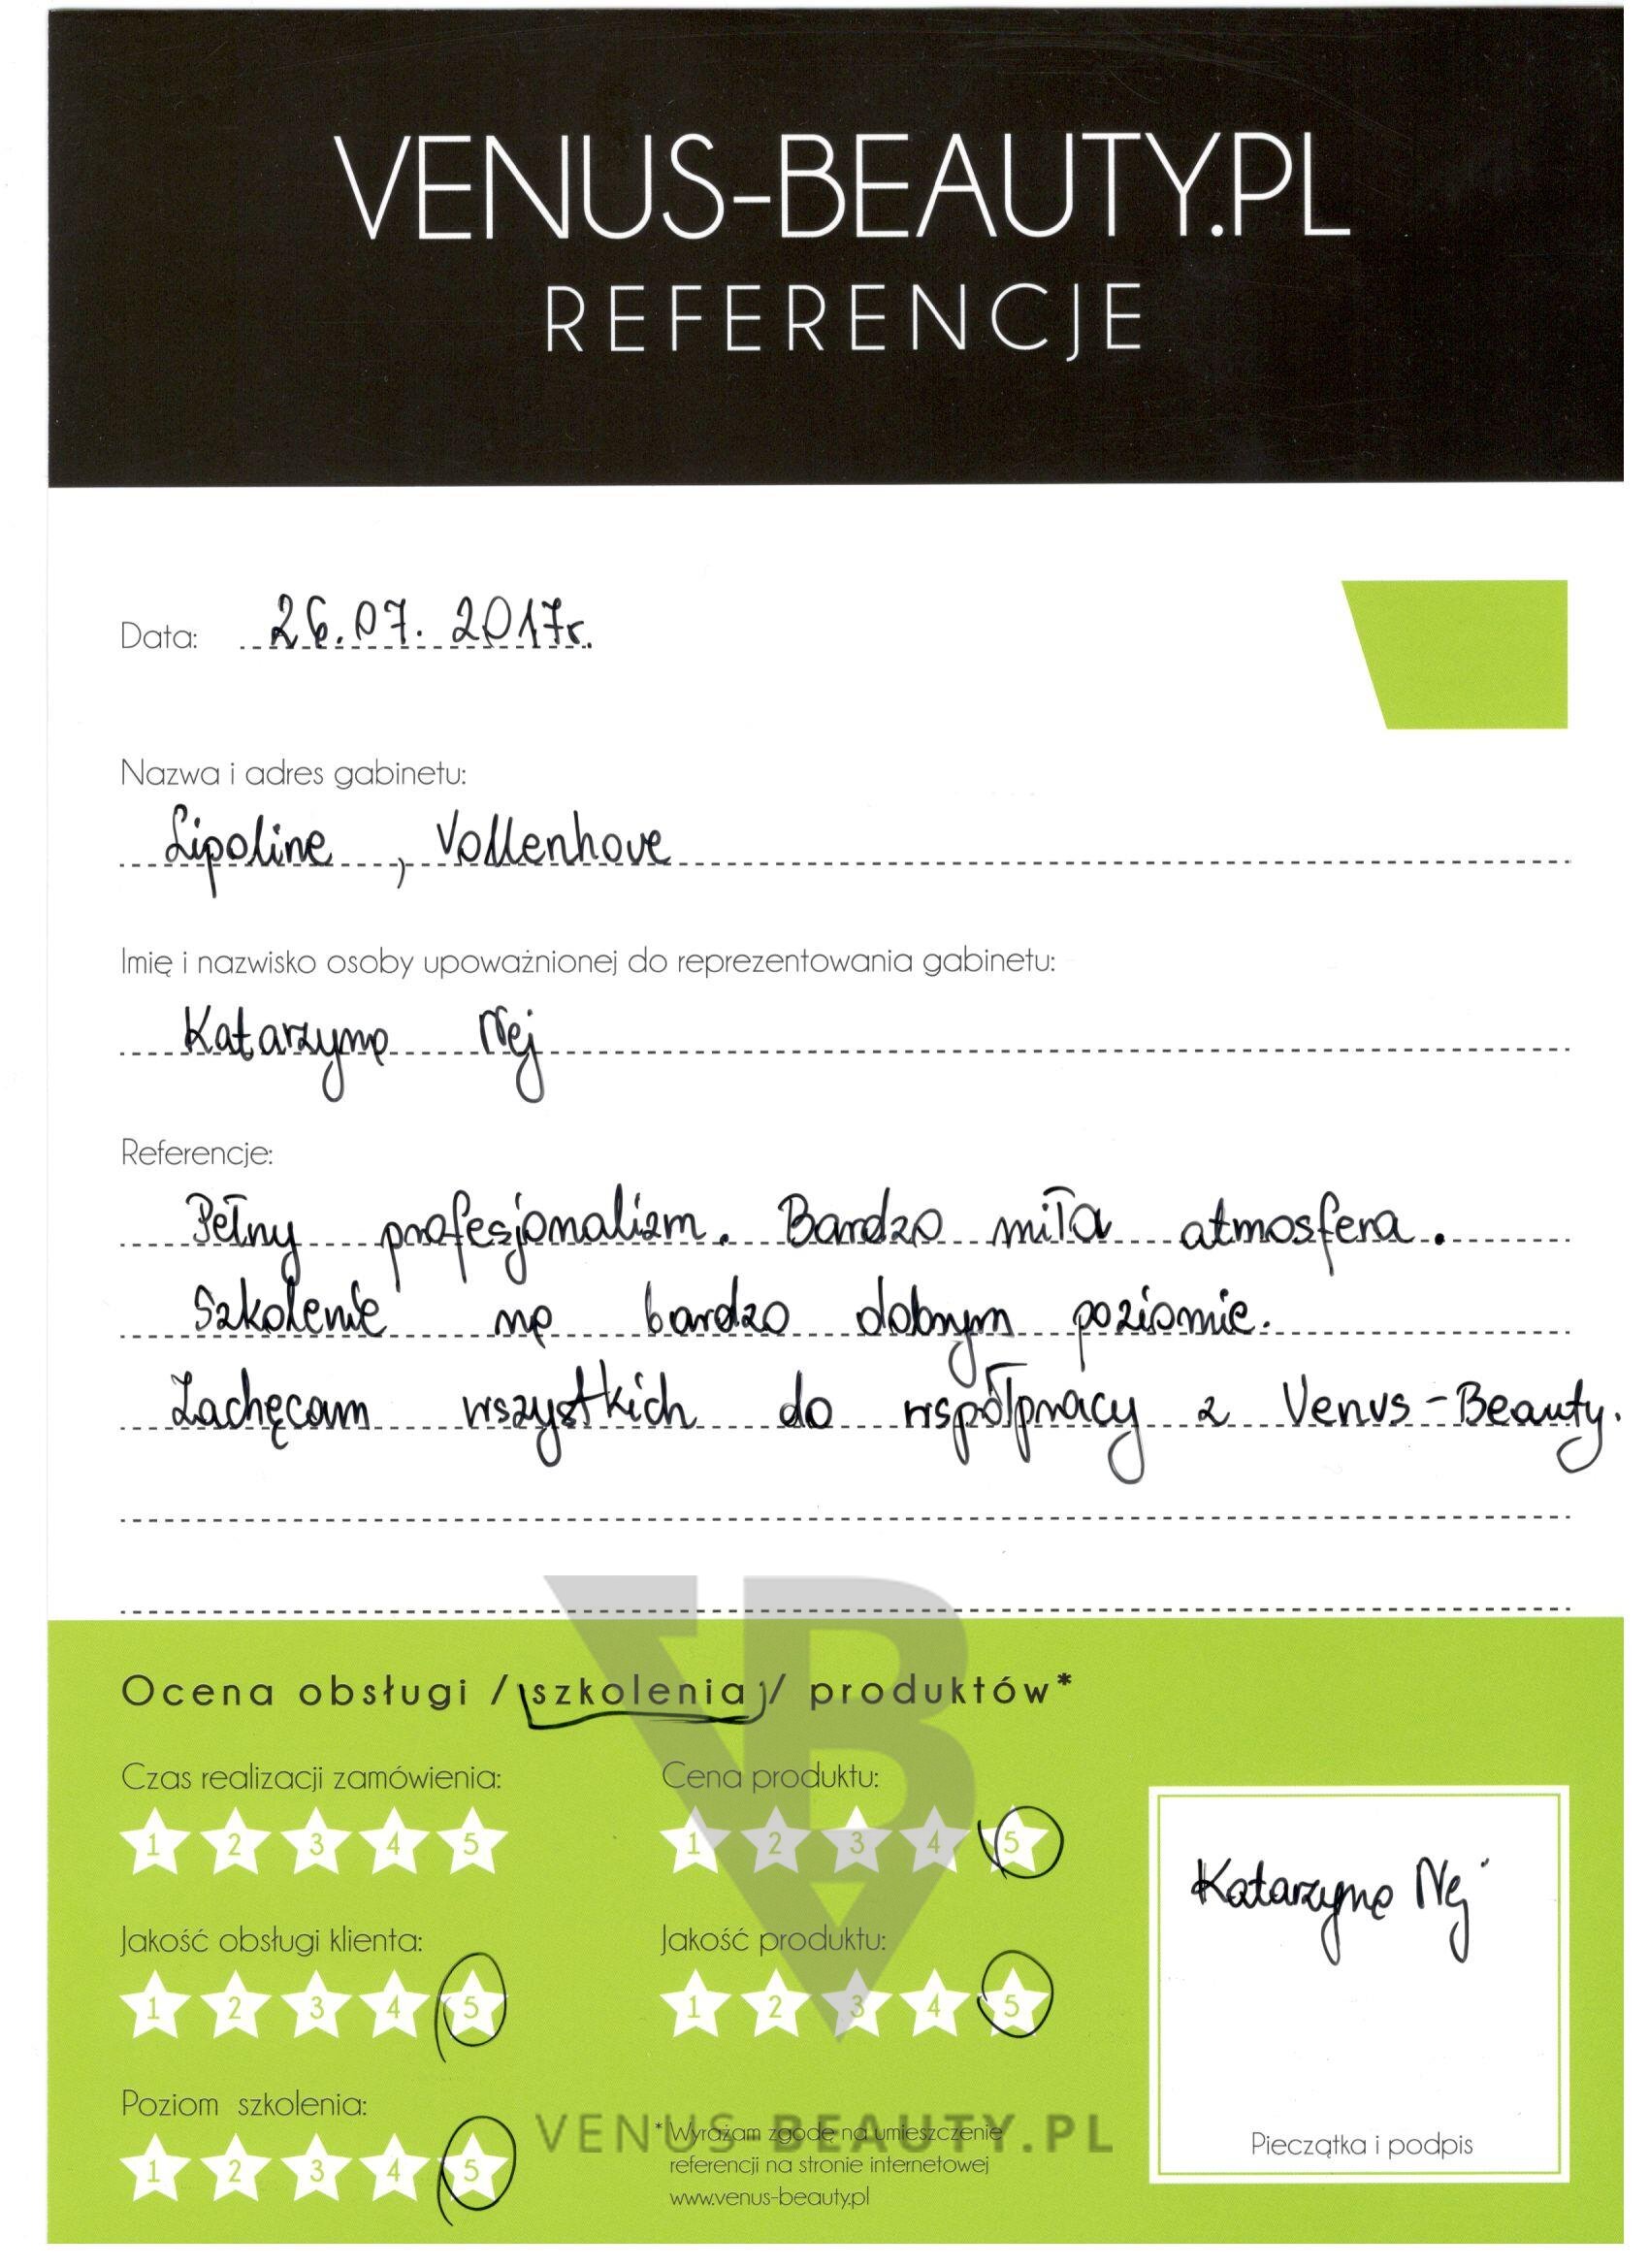 VENUS-BEAUTY.PL
REFERENCJE
Data: 26.07.2017r.
Nazwa i adres gabinetu:
Lipoline, Vollenhove
Imię i nazwisko osoby upoważnionej do reprezentowania gabinetu:
Katarzyna Nej
Referencje:
Pełny profesjonalizm. Bardzo miła atmosfera.
Szkolenie na bardzo dobrym poziomie.
Zachęcam wszystkich do współpracy z Venus-Beauty.
Ocena obsługi / szkolenia / produktów*
Czas realizacji zamówienia:
1 2 3 4 5
Cena produktu:
1 2 3 4 5
Jakość obsługi klienta:
1 2 3 4 5
Jakość produktu:
1 2 3 4 5
Poziom szkolenia:
1 2 3 4 5
* Wyrażam zgodę na umieszczenie
referencji na stronie internetowej
www.venus-beauty.pl
Katarzyna Nej
Pieczątka i podpis
VB
VENUS-BEAUTY.PL